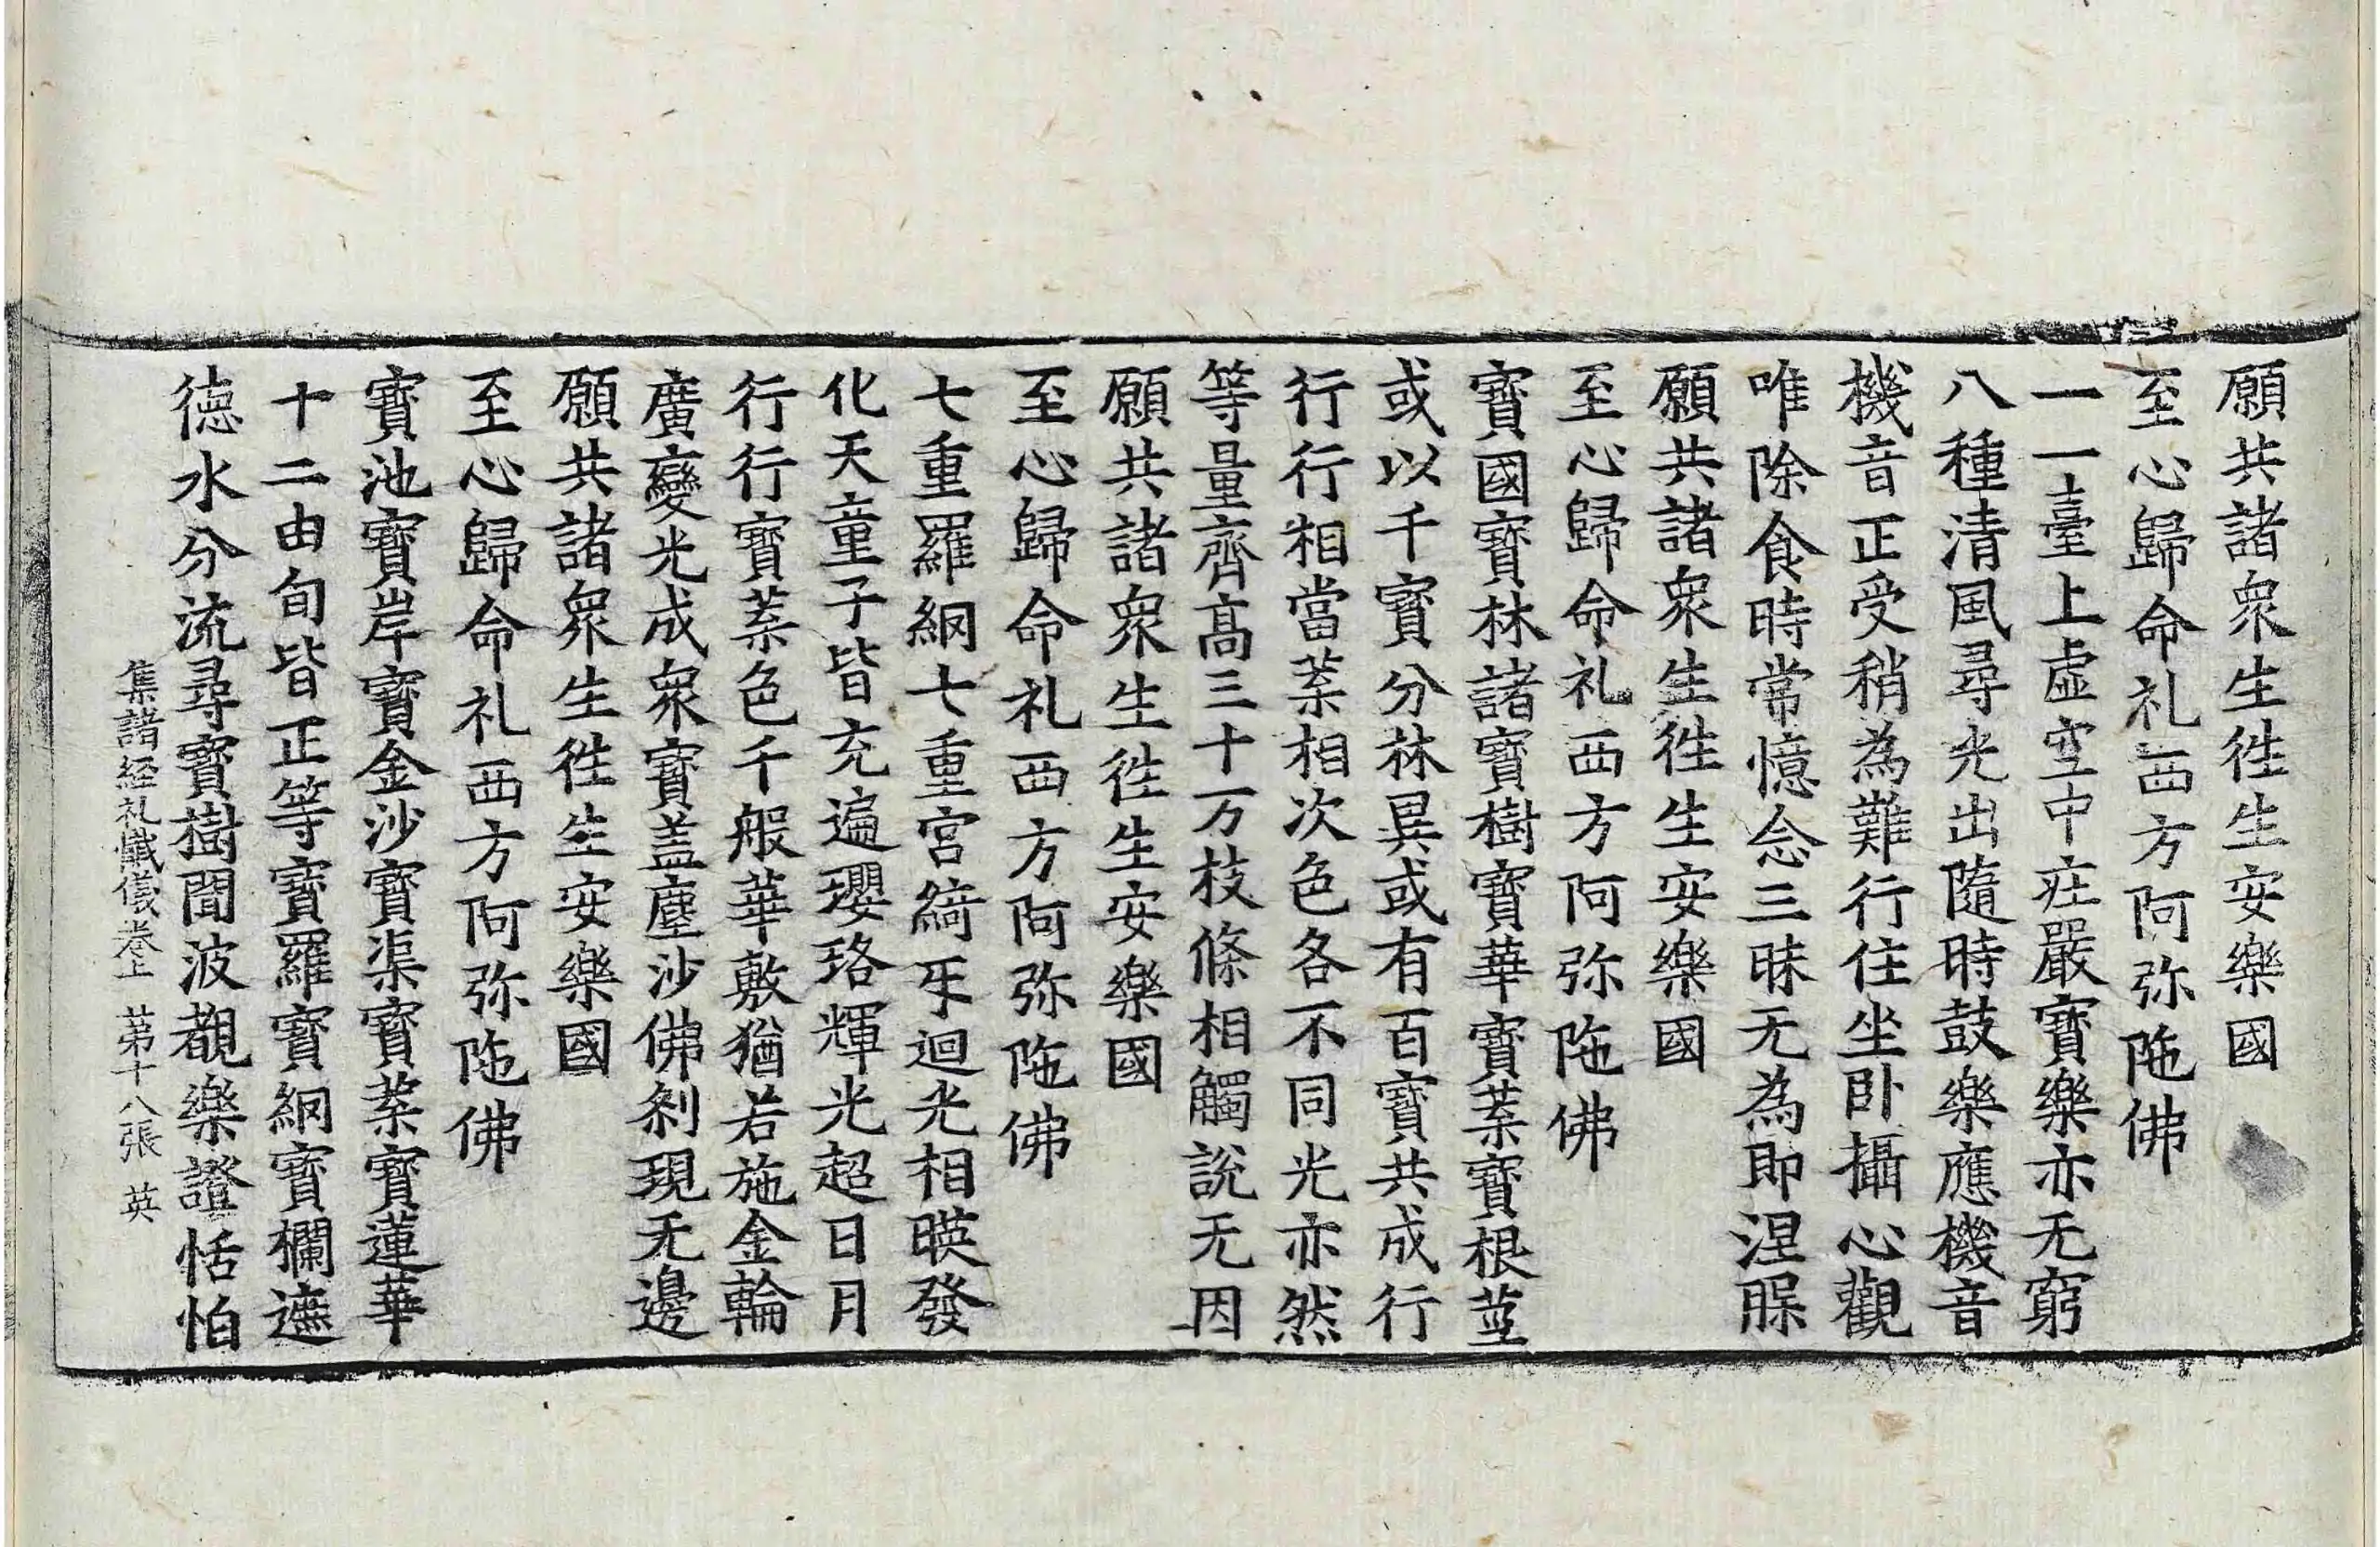 願共諸衆生徃生安樂國
至心歸命礼西方阿弥陁佛
一一臺上虛空中㽵嚴寶樂亦无窮
八種清風尋光出隨時鼓樂應機音
機音正受稍為難行住坐卧攝心觀
唯除食時常憶念三昧无為即涅䐁
願共諸衆生徃生安樂國
至心歸命礼西方阿弥陁佛
寶國寶林諸寶樹寶華寶葉寶根莖
或以千寶分林異或有百寶共成行
行行相當葉相次色各不同光亦然
等量齊高三十万枝條相觸說无因
願共諸衆生徃生安樂國
至心歸命礼西方阿弥陁佛
七重羅網七重宮綺㸦迴光相暎發
化天童子皆充遍瓔珞輝光超日月
行行寶葉色千般華敷猶若施金輪
廣變光成衆寶盖塵沙佛刹現无邊
願共諸衆生徃生安樂國
至心歸命礼西方阿弥陁佛
寶池寶岸寶金沙寶渠寶葉寶蓮華
十二由旬皆正等寶羅寶網寶欄遮
徳水分流尋寶樹聞波覩樂證恬怕
集諸経礼懺儀卷上 苐十八張 英